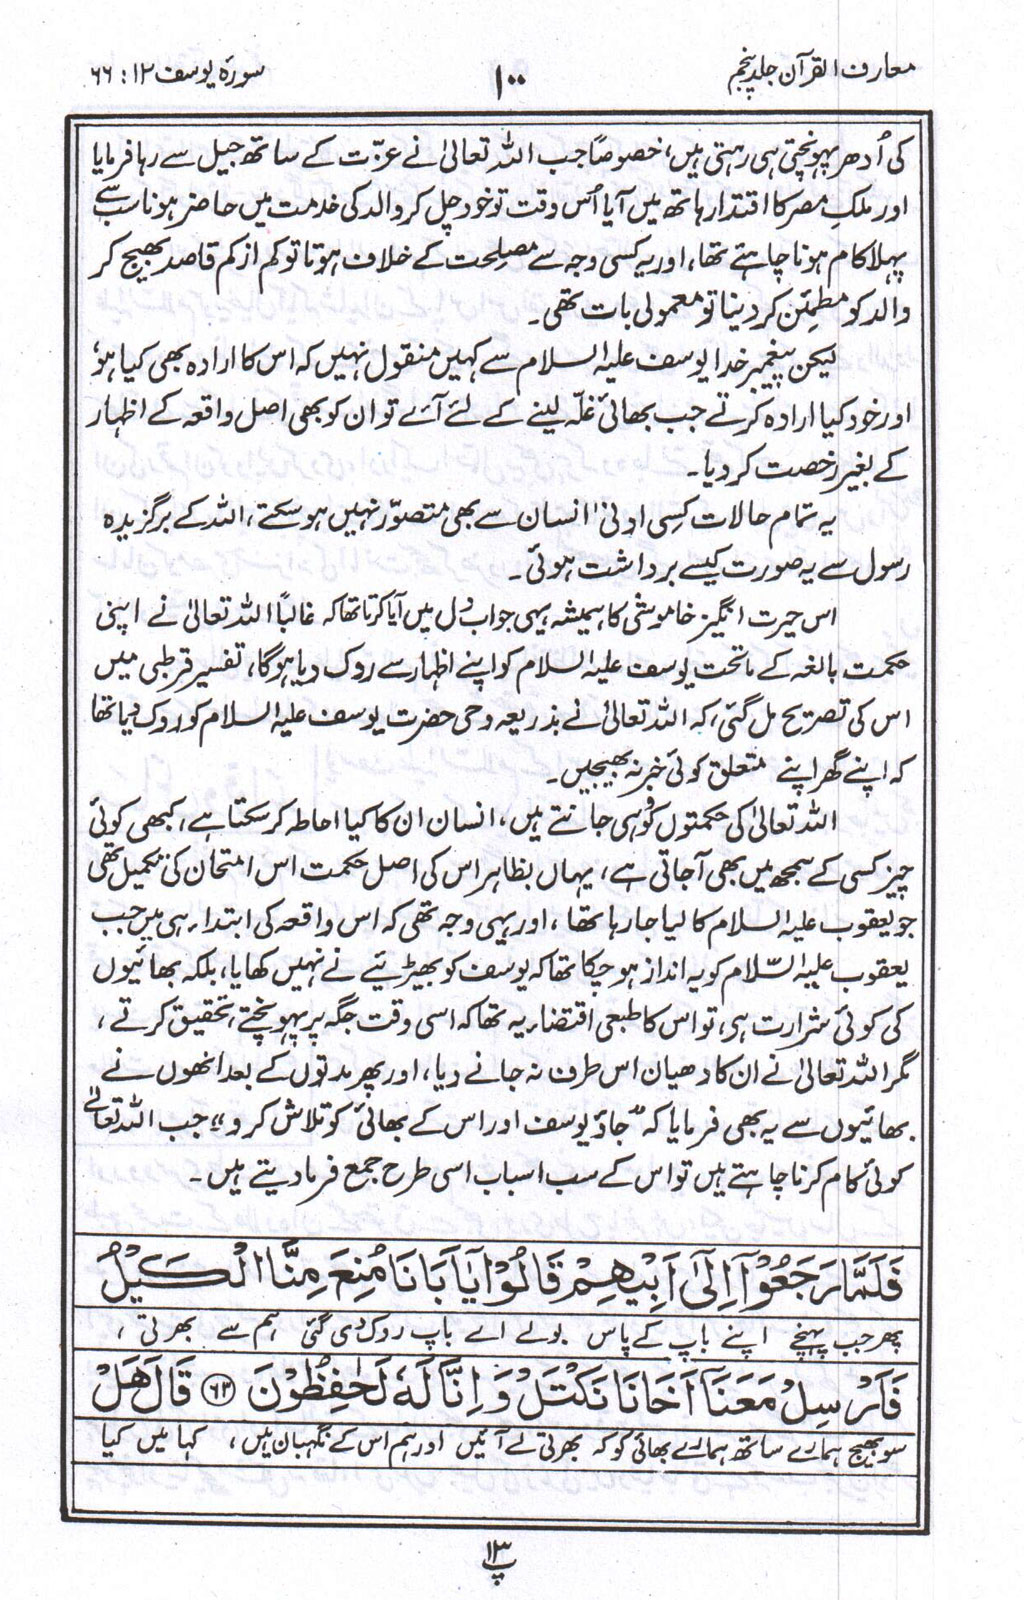 معارف القرآن جلد پنجم
۱۰۰
سورۃ یوسف ۱۲ : ۶۶
کی اُدھر پہونچتی ہی رہتی ہیں، خصوصاً جب اللہ تعالیٰ نے عزّت کے ساتھ جیل سے رہا فرمایا
اور ملکِ مصر کا اقتدار ہاتھ میں آیا اُس وقت تو خود چل کر والد کی خدمت میں حاضر ہونا سب سے
پہلا کام ہونا چاہئے تھا، اور یہ کسی وجہ سے مصلحت کے خلاف ہوتا تو کم از کم قاصد بھیج کر
والد کو مطمئن کر دینا تو معمولی بات تھی۔
لیکن پیغمبر خدا یوسف علیہ السلام سے کہیں منقول نہیں کہ اس کا ارادہ بھی کیا ہو،
اور خود کیا ارادہ کرتے جب بھائی غلّہ لینے کے لئے آئے تو ان کو بھی اصل واقعہ کے اظہار
کے بغیر رخصت کر دیا۔
یہ تمام حالات کسی ادنیٰ انسان سے بھی متصوّر نہیں ہو سکتے، اللہ کے برگزیدہ
رسول سے یہ صورت کیسے برداشت ہوئی۔
اس حیرت انگیز خاموشی کا ہمیشہ یہی جواب دل میں آیا کرتا تھا کہ غالباً اللہ تعالیٰ نے اپنی
حکمت بالغہ کے ماتحت یوسف علیہ السلام کو اپنے اظہار سے روک دیا ہوگا، تفسیر قرطبی میں
اس کی تصریح مل گئی، کہ اللہ تعالیٰ نے بذریعہ وحی حضرت یوسف علیہ السلام کو روک دیا تھا
کہ اپنے گھر اپنے متعلق کوئی خبر نہ بھیجیں۔
اللہ تعالیٰ کی حکمتوں کو وہی جانتے ہیں، انسان ان کا کیا احاطہ کر سکتا ہے، کبھی کوئی
چیز کسی کے سمجھ میں بھی آجاتی ہے، یہاں بظاہر اس کی اصل حکمت اس امتحان کی تکمیل تھی
جو یعقوب علیہ السلام کا لیا جا رہا تھا، اور یہی وجہ تھی کہ اس واقعہ کی ابتداء ہی میں جب
یعقوب علیہ السّلام کو یہ انداز ہو چکا تھا کہ یوسف کو بھیڑیئے نے نہیں کھایا، بلکہ بھائیوں
کی کوئی شرارت ہی، تو اس کا طبعی اقتضاء یہ تھا کہ اسی وقت جگہ پر پہونچتے، تحقیق کرتے،
مگر اللہ تعالیٰ نے ان کا دھیان اس طرف نہ جانے دیا، اور پھر مدتوں کے بعد انھوں نے
بھائیوں سے یہ بھی فرمایا کہ “جاؤ یوسف اور اس کے بھائی کو تلاش کرو” جب اللہ تعالےٰ
کوئی کام کرنا چاہتے ہیں تو اس کے سب اسباب اسی طرح جمع فرما دیتے ہیں۔
فَلَمَّا رَجَعُوْٓا اِلٰٓى اَبِيْهِمْ قَالُوْا يٰٓاَبَانَا مُنِعَ مِنَّا الْكَيْلُ
پھر جب پہنچے اپنے باپ کے پاس بولے اے باپ روک دی گئی ہم سے بھرتی ،
فَاَرْسِلْ مَعَنَآ اَخَانَا نَكْتَلْ وَاِنَّا لَهٗ لَحٰفِظُوْنَ ۶۳ قَالَ هَلْ
سو بھیج ہمارے ساتھ ہمارے بھائی کو کہ بھرتی لے آئیں اور ہم اس کے نگہبان ہیں ، کہا میں کیا
پ ۱۳